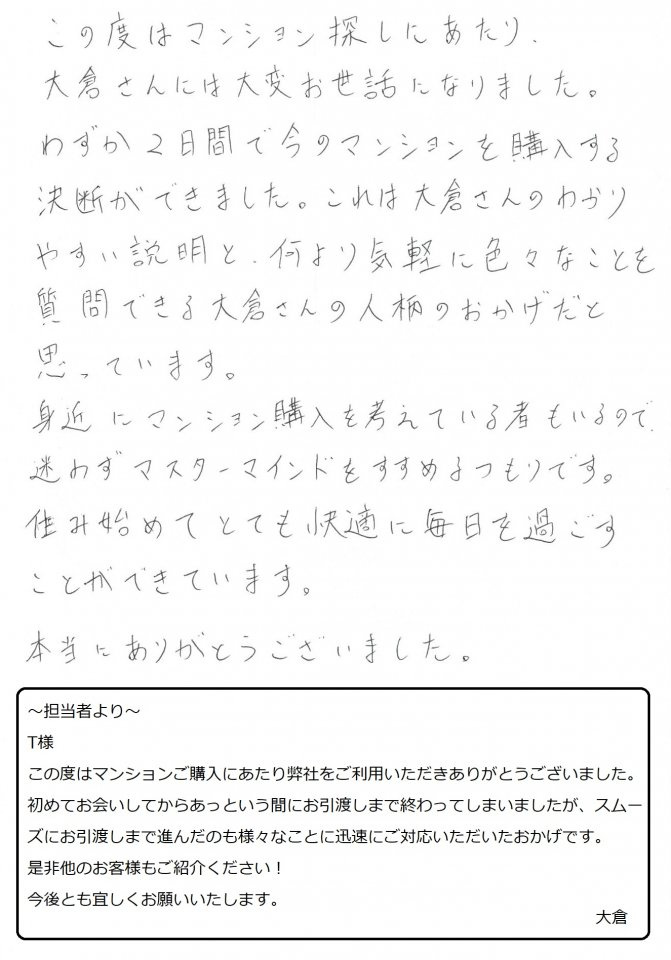 この度はマンション探しにあたり、
大倉さんには大変お世話になりました。
わずか2日間で今のマンションを購入する
決断ができました。これは大倉さんのわかり
やすい説明と、何より気軽に色々なことを
質問できる大倉さんの人柄のおかげだと
思っています。
身近にマンション購入を考えている者もいるので、
迷わずマスターマインドをすすめるつもりです。
住み始めてとても快適に毎日を過ごす
ことができています。
本当にありがとうございました。
～担当者より～
T様
この度はマンションご購入にあたり弊社をご利用いただきありがとうございました。
初めてお会いしてからあっという間にお引渡しまで終わってしまいましたが、スムー
ズにお引渡しまで進んだのも様々なことに迅速にご対応いただいたおかげです。
是非他のお客様もご紹介ください！
今後とも宜しくお願いいたします。
大倉